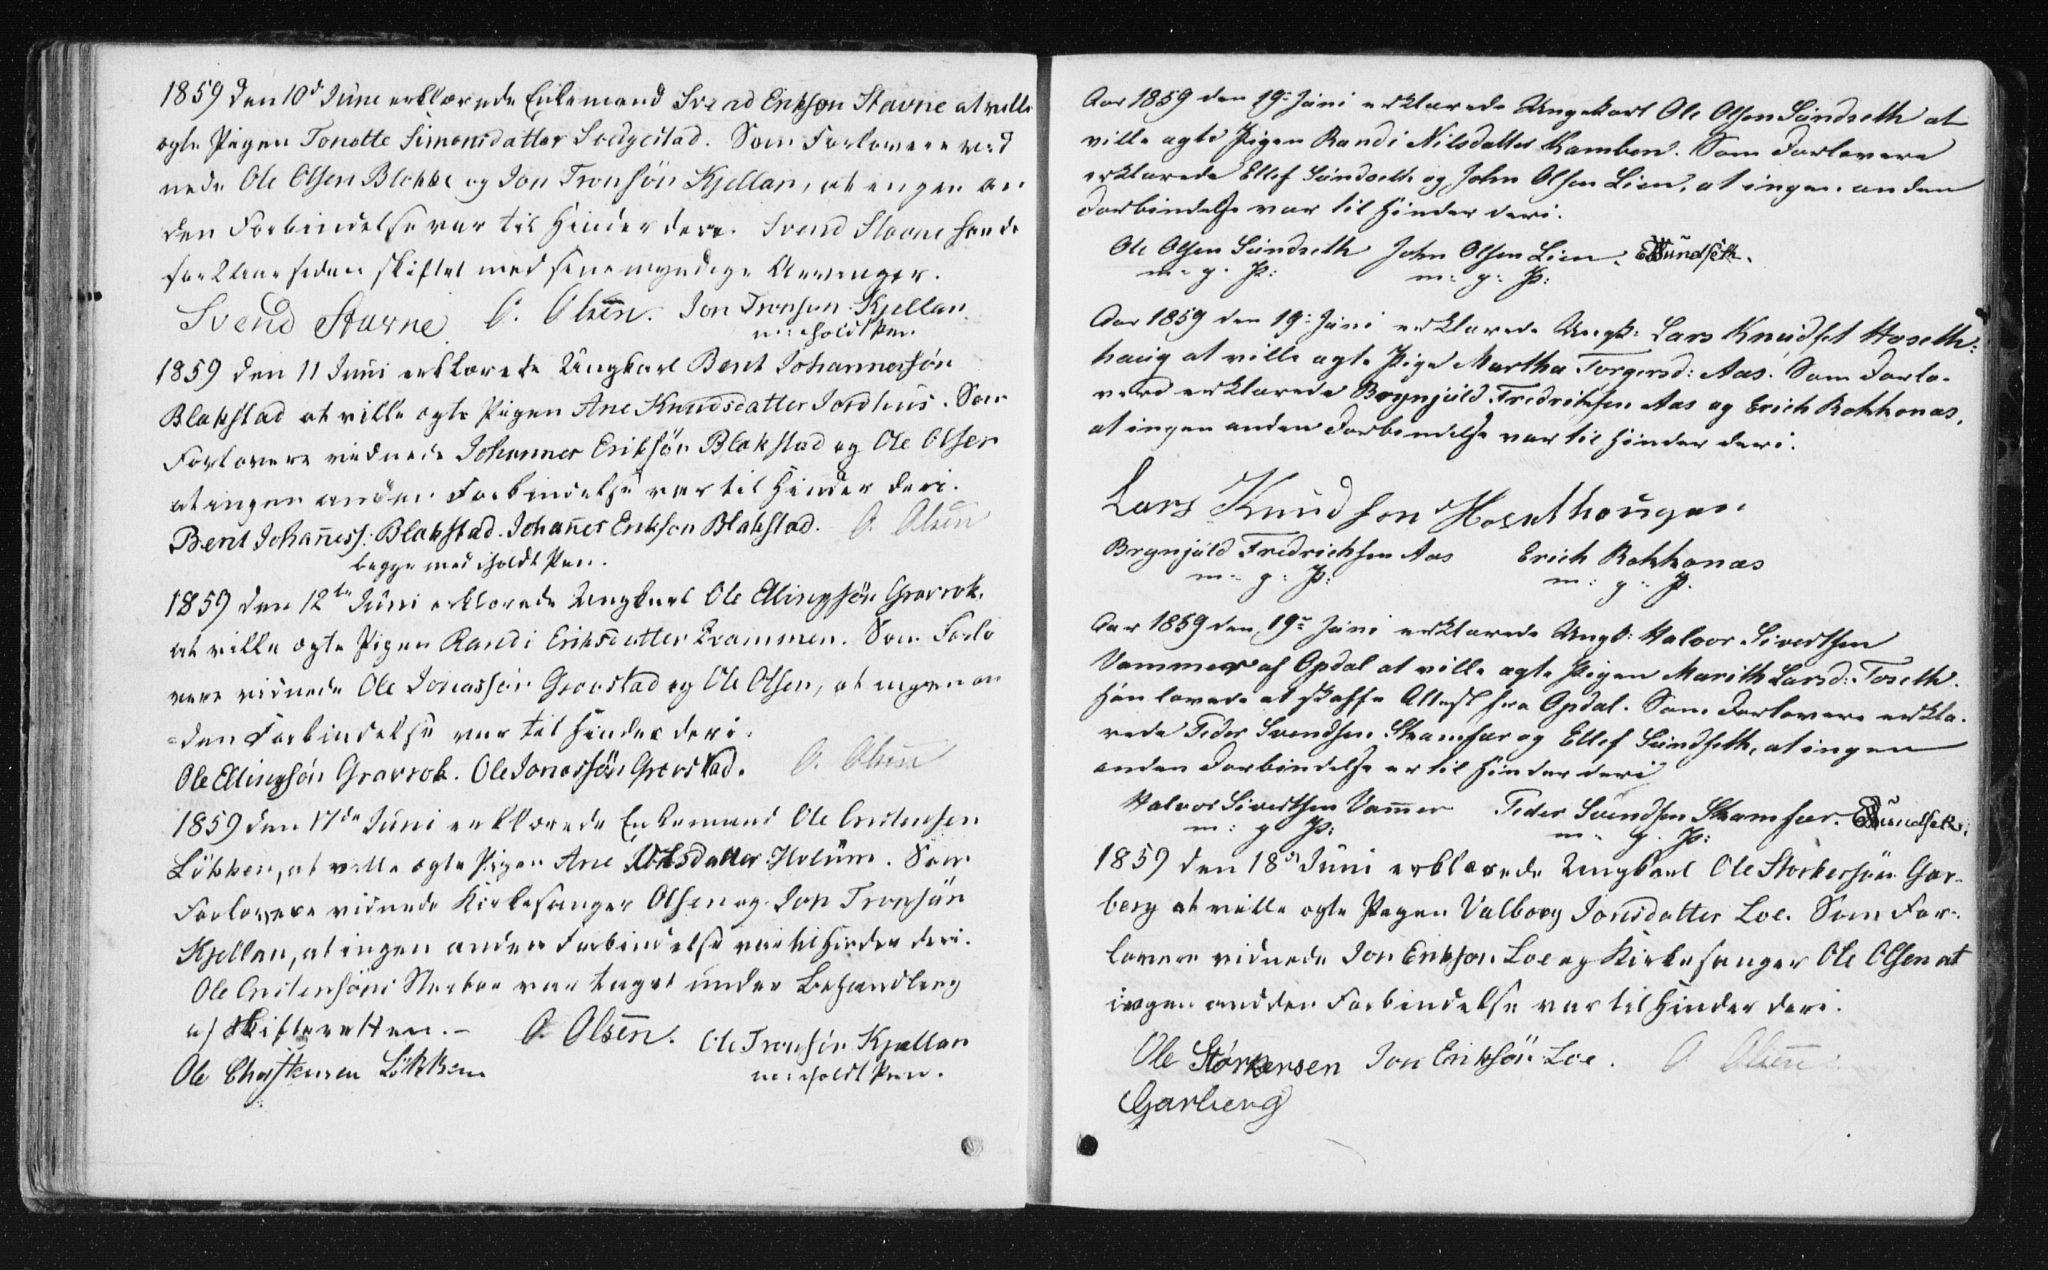 1859 den 10d June erklærede Enkemand Svend Erikson Stavne at ville
ægte Pigen Tonette Simonsdatter Sved gestad. Som Forlovere vid
nede Ole Olsen Blokke og Jon Tronsön Kjellan, at engen an
den Forbindelse var til Hinder deri. Svend Stavne havde
forklaret siden skiftet med sine myndige Arvinger.
Svend Stavne. O. Olsen. Jon Tronson Kjellan
m: holdt Pen
1859 den 11 Juni erklærede Ungkarl Bent Johannessön
Blakstad at ville ægte Pigen Ane Knudsdatter Jordhus. Som
Forlovere vidnede Johannes Eriksön Blakstad og Ole Olsen
at ingen anden Forbindelse var til Hinder deri.
Bent Johanness: Blakstad. Johanes Erikson Blakstad. O. Olsen
begge med holdt Pen.
1859 den 12te Juni erklærede Ungkarl Ole Ellingsön Gravrok.
at ville ægte Pigen Randi Eriksdatter Krammen. Som Forlo
vere vidnede Ole Jonassön Gravstad og Ole Olsen, at ingen an
=den Forbindelse var til Hinder deri.
Ole Ellingsön Gravrok. Ole Jonassön Gravstad. O. Olsen
1859 den 17de Juni erklærede Enkemand Ole Cristensen
Lökken, at ville ægte Pigen Ane Olsdatter Holüm. Som
Forlovere vidnede Kirkesanger Olsen og Jon Tronsön
Kjellan, at ingen anden Forbindelse var til Hinder deri.
Ole Cristensöns Sterboe var taget under Behandling
af Skifteretten.- O. Olsen. Ole Tronsön Kjellan
Ole Christensen Lökken m: holdt Pen.
Aar 1859 den 19: Juni erklærede Ungekarl Ole Olsen Sündseth at
ville ægte Pigen Randi Nilsdatter Kamben. Som Forlovere
erklærede Ellef Sündseth og John Olsen Lien, at ingen anden
Forbindelse var til Hinder deri.
Ole Olsen Sündseth John Olsen Lien. ESündseth.
m. g. P: m: g: P:
Aar 1859 den 19: Juni erklærede Ungk: Lars Knudset Hoseth:
haug at ville ægte Pige Martha Torgersd: Aas. Som Forlo-
vere erklærede Brynjüld Fredrichsen Aas og Erich Rokkonas,
at ingen anden Forbindelse var til Hinder deri.
Lars Knudson Hosethougen
Brynjüld Fredrichsen Aas Erich Rokkonas
m. g: P: m: g: P.
Aar 1859 den 19de Juni erklærede Ungk: Halvor Sivertsen
Vammer af Opdal at ville ægte Pigen Marith Larsd: Toseth.
Han lovede at skaffe Attest fra Opdal. Som Forlovere erklæ-
rede Peder Svendsen Skamfær og Ellef Sündseth, at ingen
anden Forbindelse er til Hinder deri
Halvor Sivertsen Vammer Peder Svendsen Skamfær. ESündseth.
m: g P: m. g. P:
1859 den 18de Juni erklærede Ungkarl Ole Storkersön Gar-
berg at ville ægte Pigen Valborg Jonsdatter Loe. Som For-
lovere vidnede Jon Erikson Loe og Kirkesanger Ole Olsen at
ingen andden Forbindelse var til Hinder deri.
Ole Størkersen Jon Eriksön Loe. O. Olsen
Garberg